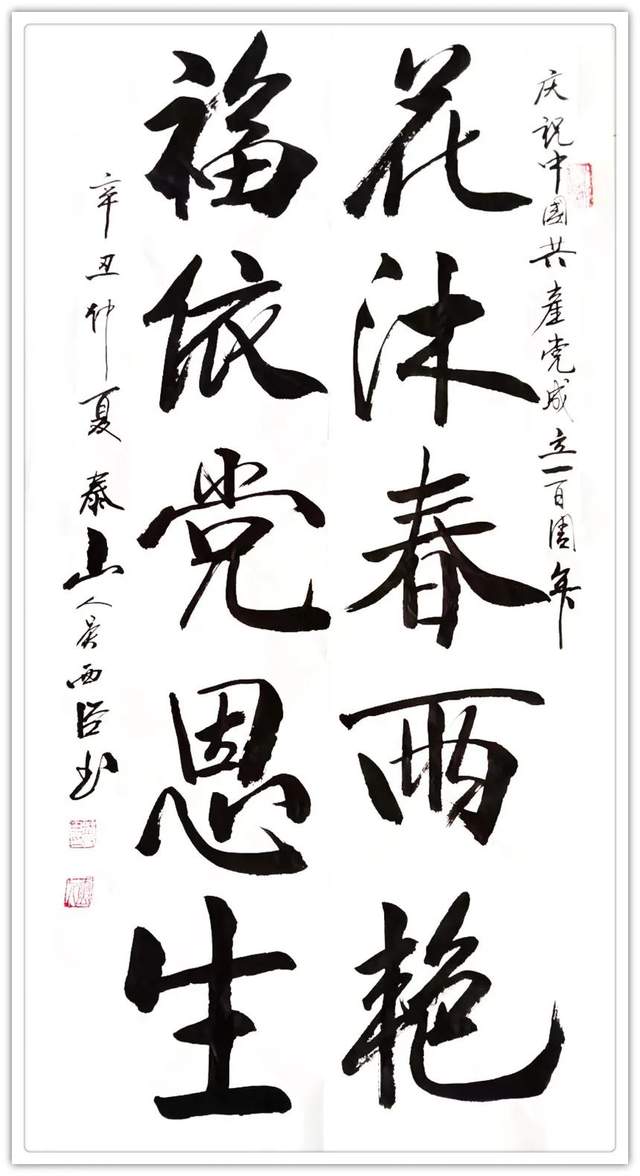 庆祝中国共產党成立一百周年
花沐春雨艳
福依党恩生
辛丑仲夏泰山人吴西
书